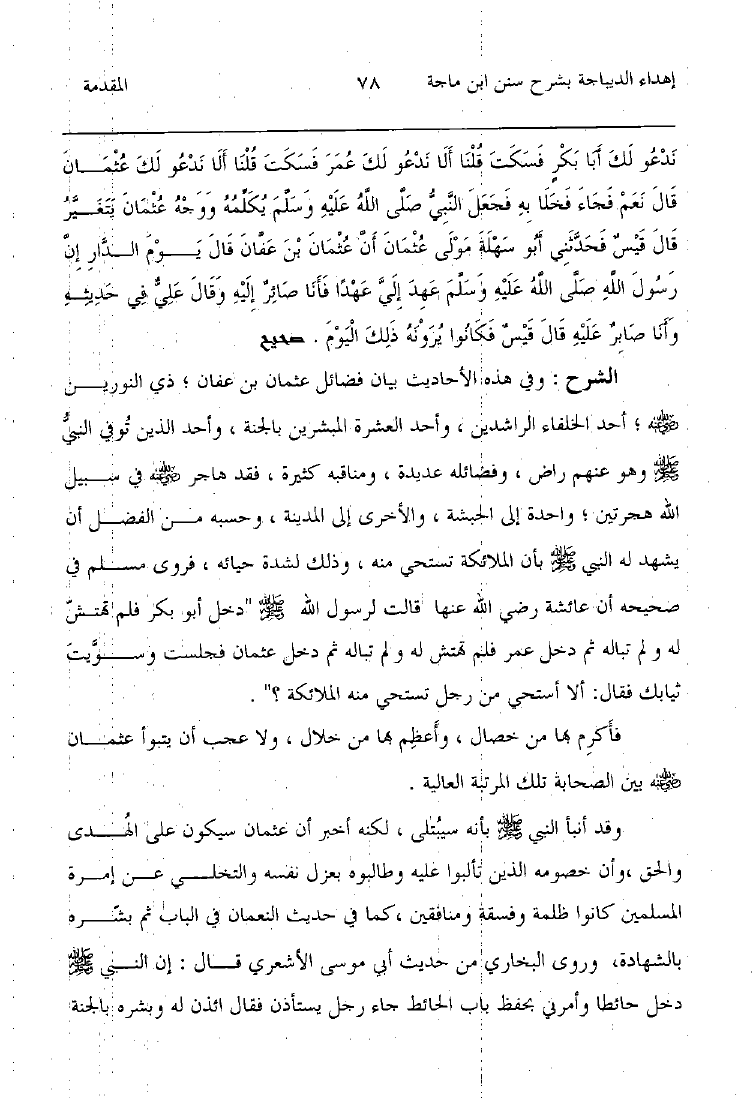 إهداء الديباجة بشرح سنن ابن ماجة ٧٨ المقدمة
نَدْعُو لَكَ أَبَا بَكْرٍ فَسَكَتَ قُلْنَا أَلَا نَدْعُو لَكَ عُمَرَ فَسَكَتَ قُلْنَا أَلَا نَدْعُو لَكَ عُثْمَـــانَ
قَالَ نَعَمْ فَجَاءَ فَخَلَا بِهِ فَجَعَلَ النَّبِيُّ صَلَّى اللَّهُ عَلَيْهِ وَسَلَّمَ يُكَلِّمُهُ وَوَجْهُ عُثْمَانَ يَتَغَـــيَّرُ
قَالَ قَيْسٌ فَحَدَّثَنِي أَبُو سَهْلَةَ مَوْلَى عُثْمَانَ أَنَّ عُثْمَانَ بْنَ عَفَّانَ قَالَ يَـــوْمَ الـــدَّارِ إِنَّ
رَسُولَ اللَّهِ صَلَّى اللَّهُ عَلَيْهِ وَسَلَّمَ عَهِدَ إِلَيَّ عَهْدًا فَأَنَا صَائِرٌ إِلَيْهِ وَقَالَ عَلِيٌّ فِي حَدِيثِـــهِ
وَأَنَا صَابِرٌ عَلَيْهِ قَالَ قَيْسٌ فَكَانُوا يُرَوْنَهُ ذَلِكَ الْيَوْمَ . صحيح
الشرح : وفي هذه الأحاديث بيان فضائل عثمان بن عفان ؛ ذي النوريـــن
ﷺ ؛ أحد الخلفاء الراشدين ، وأحد العشرة المبشرين بالجنة ، وأحد الذين تُوفي النبيُّ
ﷺ وهو عنهم راض ، وفضائله عديدة ، ومناقبه كثيرة ، فقد هاجر ﷺ في سـبيل
الله هجرتين ؛ واحدة إلى الحبشة ، والأخرى إلى المدينة ، وحسبه مـــن الفضـــل أن
يشهد له النبي ﷺ بأن الملائكة تستحي منه ، وذلك لشدة حيائه ، فروى مســـلم في
صحيحه أن عائشة رضي الله عنها قالت لرسول الله ﷺ "دخل أبو بكر فلم تهتشّ
له و لم تباله ثم دخل عمر فلم تهتش له و لم تباله ثم دخل عثمان فجلست وســـوَّيتَ
ثيابك فقال: ألا أستحي من رجل تستحي منه الملائكة ؟" .
فأكرِم بها من خصال ، وأَعظِم بها من خلال ، ولا عجب أن يتبوأ عثمـــان
بين الصحابة تلك المرتبة العالية .
وقد أنبأ النبي ﷺ بأنه سيُبْتلى ، لكنه أخبر أن عثمان سيكون على الهُـــدى
والحق ،وأن خصومه الذين تألبوا عليه وطالبوه بعزل نفسه والتخلـــي عـــن إمـرة
المسلمين كانوا ظلمة وفسقة ومنافقين ،كما في حديث النعمان في الباب ثم بشّـره
بالشهادة، وروى البخاري من حديث أبي موسى الأشعري قـــال : إن النـــبي ﷺ
دخل حائطا وأمرني بحفظ باب الحائط جاء رجل يستأذن فقال ائذن له وبشره بالجنة